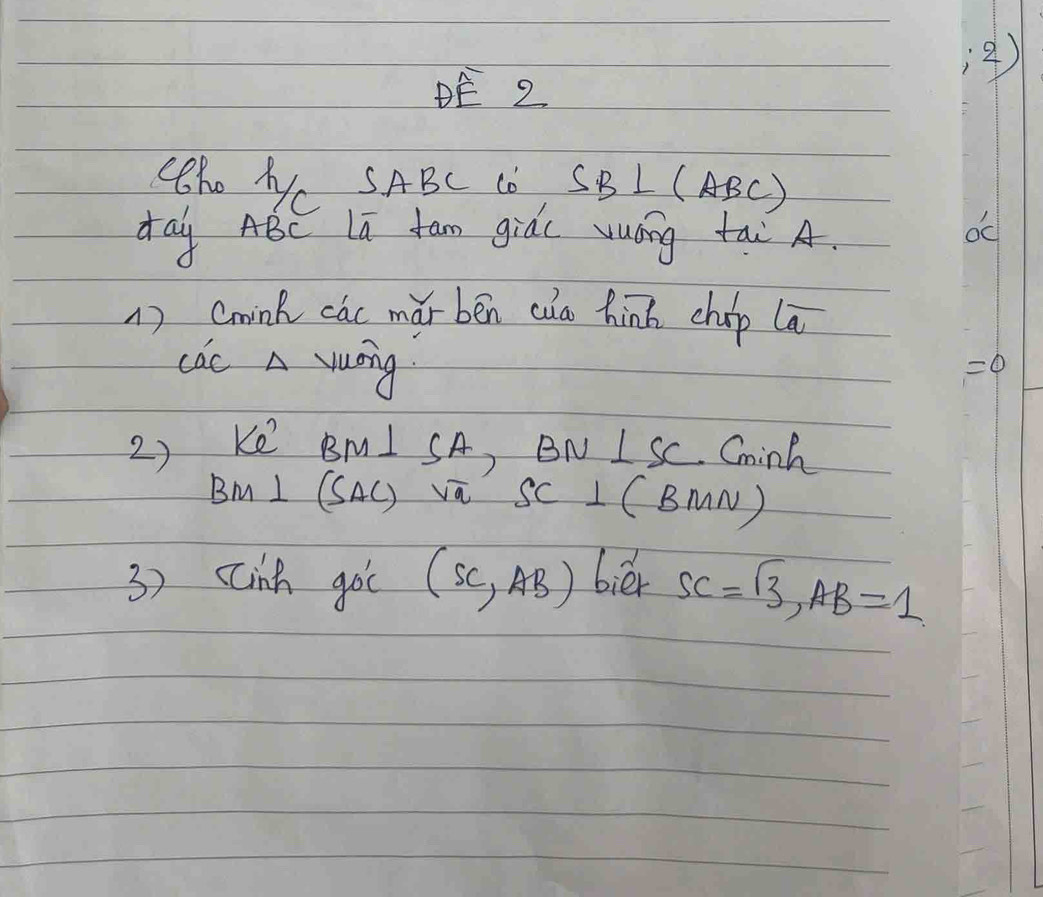 ĐỀ 2
Cho h/c SABC có SB ⊥ (ABC)
đáy ABC là tam giác vuông tại A.
1) Cminh các mặt bên của hình chóp là
các Δ vuông.
2) Kẻ BM ⊥ SA, BN ⊥ SC. Cminh
BM ⊥ (SAC) và SC ⊥ (BMN)
3) Tính góc (SC, AB) biết SC = √3, AB = 1
; 2)
óc
=0